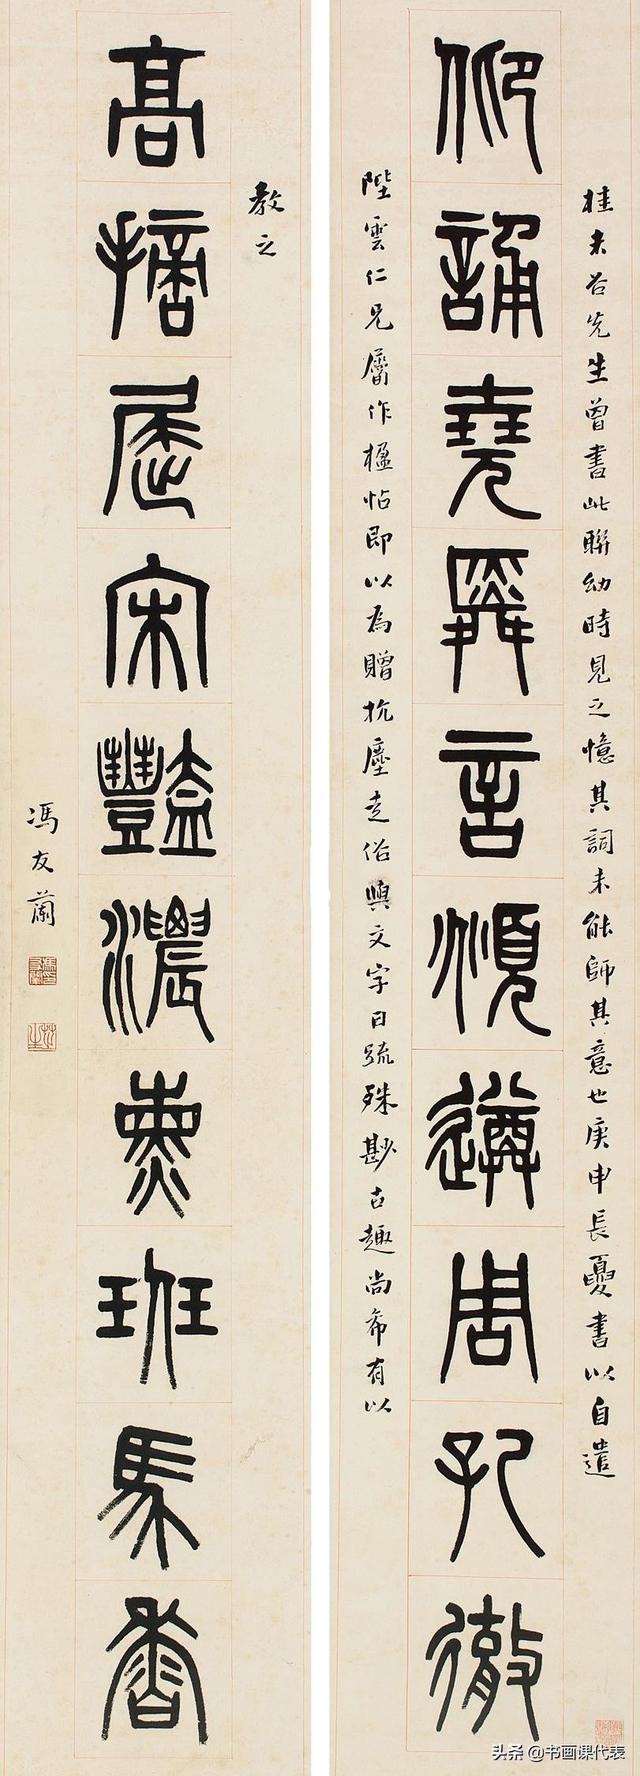 桂未谷先生曾書此聯幼時見之憶其詞未能師其意也庚申長夏書以自遣
仰誦堯舜言頫遵周孔徹
陛雲仁兄屬作楹帖即以為贈抗塵走俗與文字日疏殊尠古趣尚希有以
教之
高摘屈宋豔濃熏班馬香
馮友蘭
头条 @书画课代表